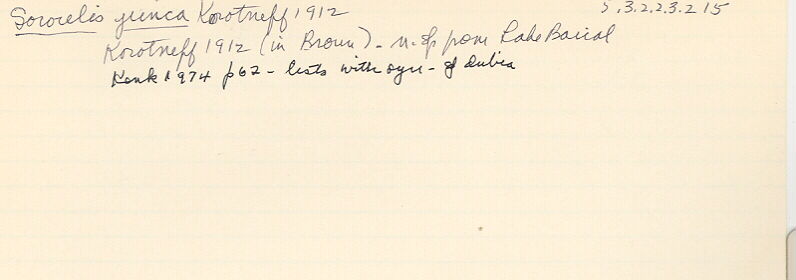 Sorocelis yunca Korotneff 1912 5.3.2.2.3.2 15
Korotneff 1912 (in Brown) - n.sp from Lake Baical
Kenk 1974 p62 - lists with syn - of dubia